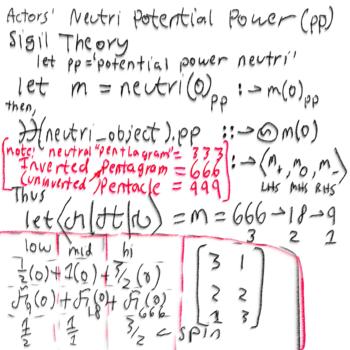 Actors' Neutri Potential Power (pp)
Sigil Theory
let pp = 'potential power neutri'
let m = neutri(0)pp :→ m(0)pp
then,
(neutri_object).pp ::→ m(0)
[note: neutral "pentagram" = 333
Inverted Pentagram = 666
(uninverted) Pentacle = 999]
:→ ⟨m+, 0, m-⟩
LHS MHS RHS
Thus
let = m = 666 → 18 → 9
3 2 1
low mid hi
1/2(0) + 1(0) + 3/2(0)
1/2 1/1 3/2 ← spin
[3 1
2 2
1 3]